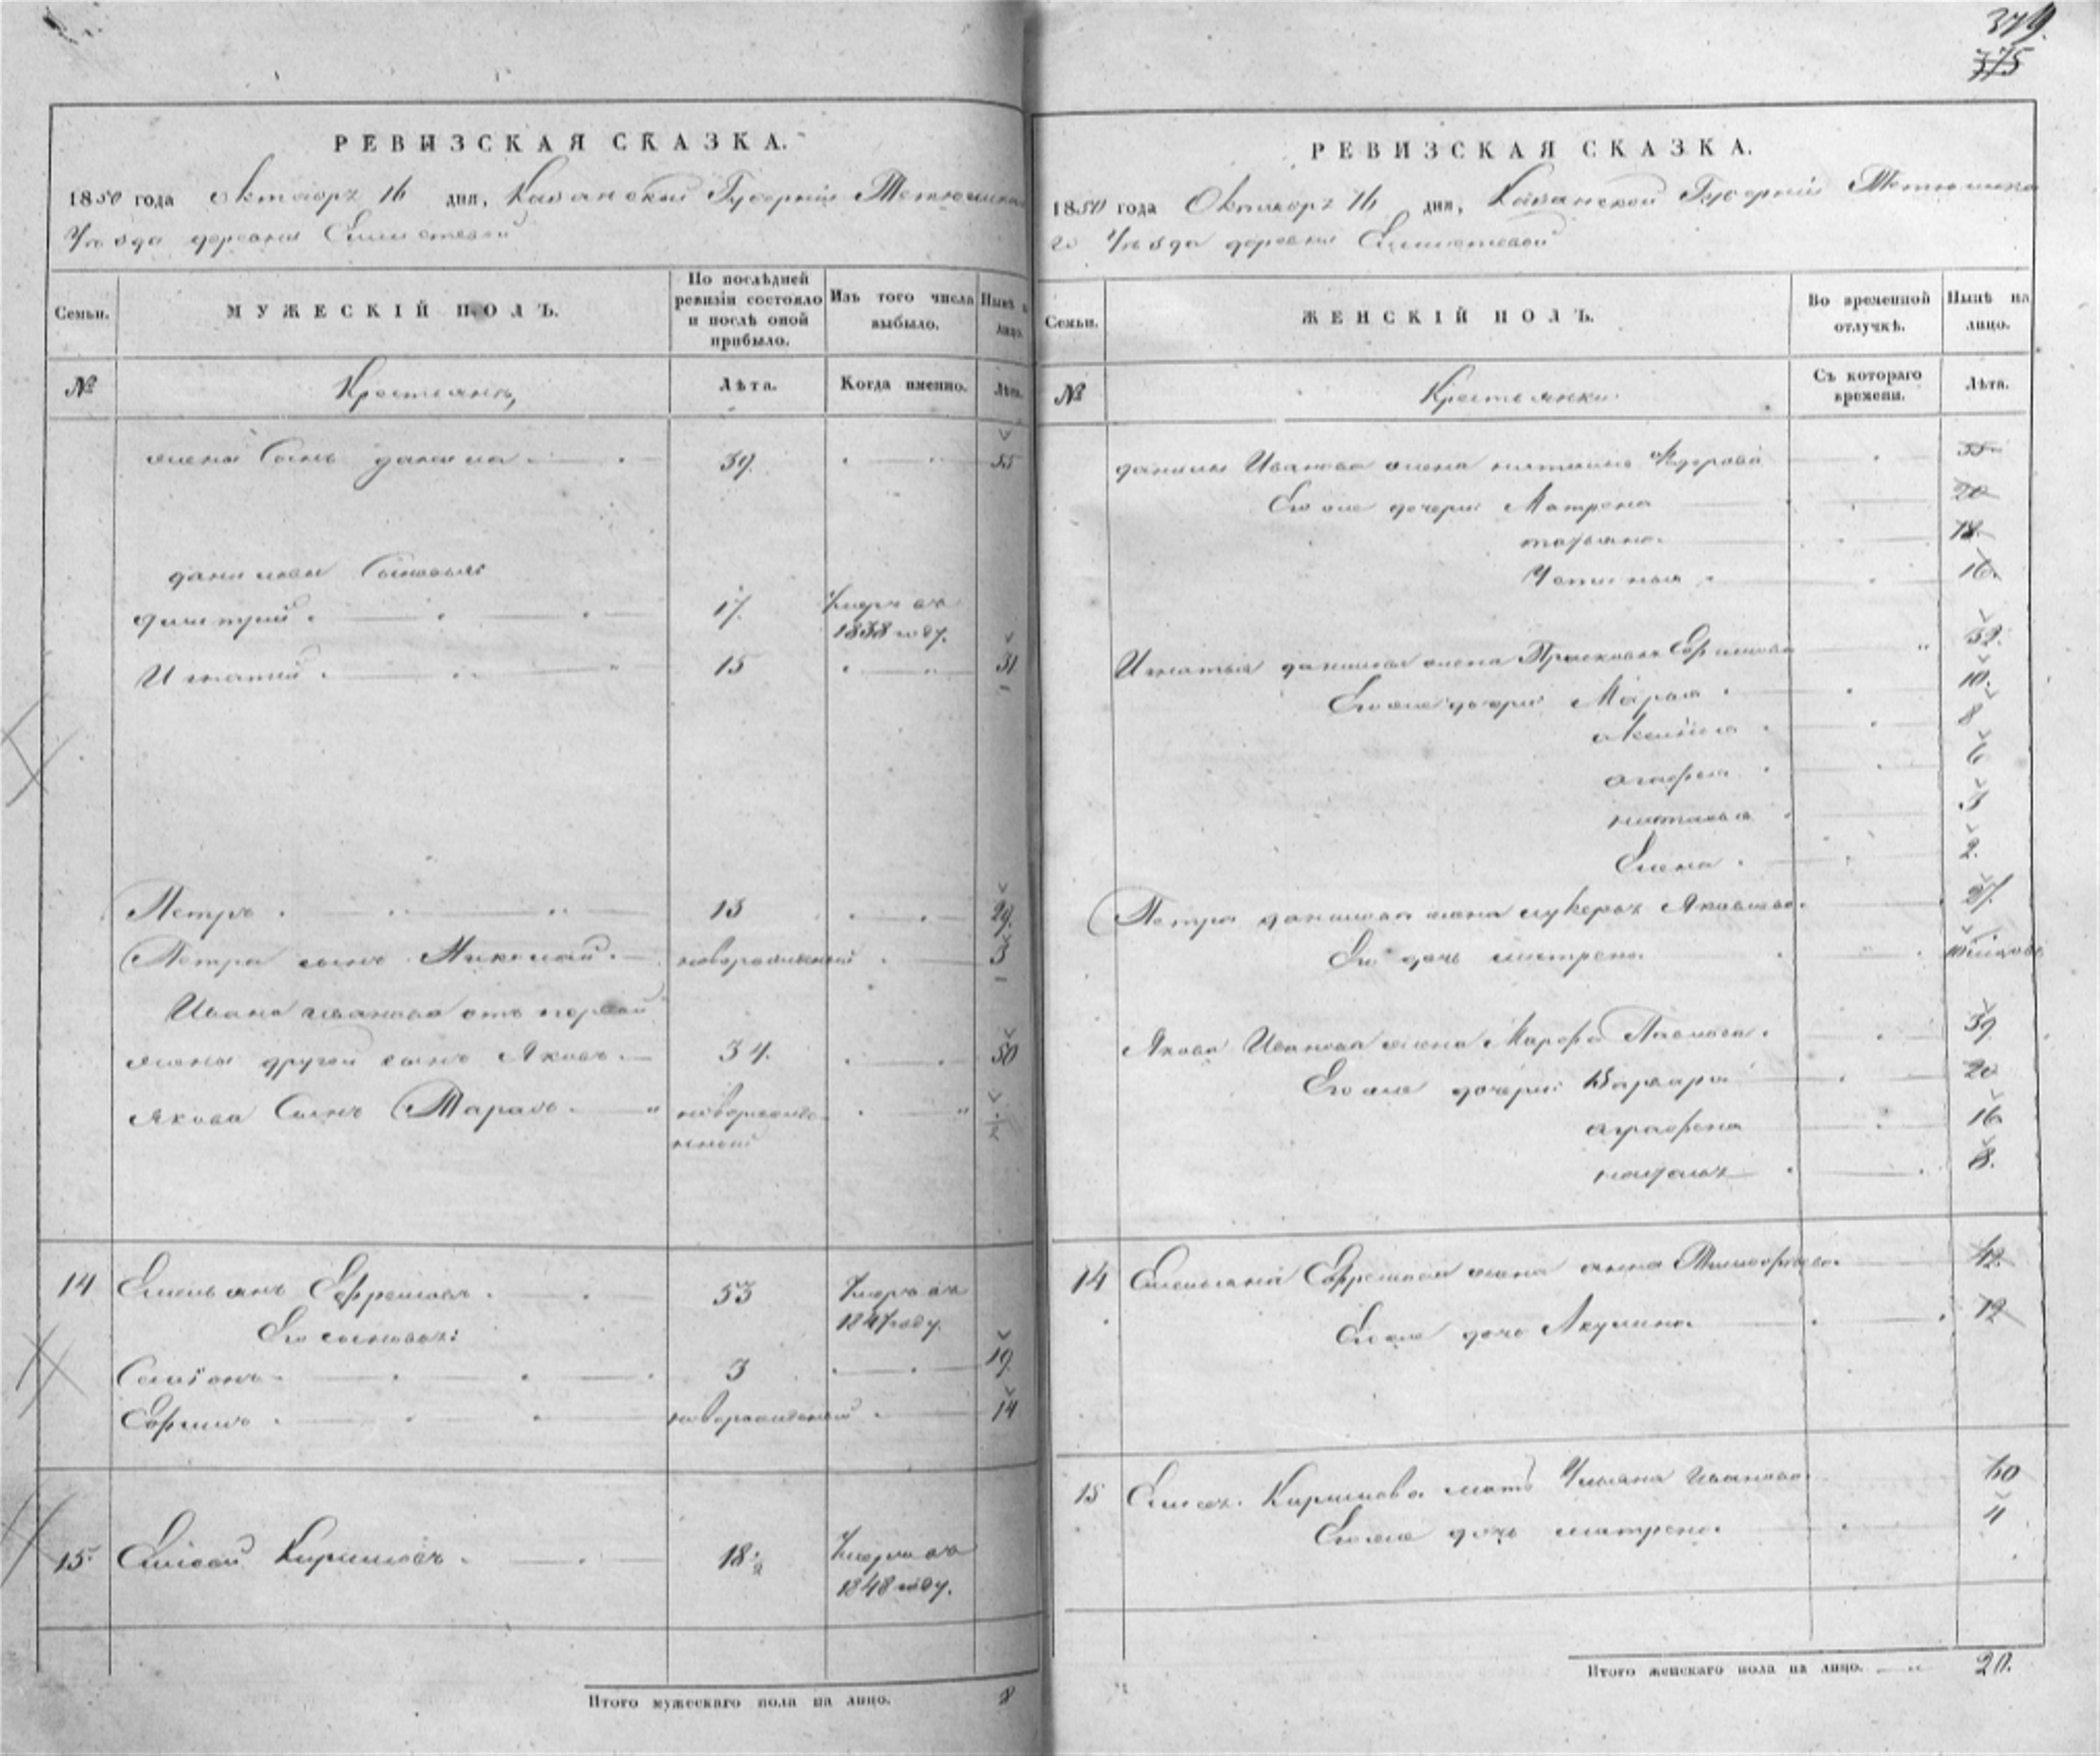 379.
375
РЕВИЗСКАЯ СКАЗКА.
1850 года Октября 16 дня, Казанской Губернiи Тетюшскаго
Уѣзда деревни
Семьи.
МУЖЕСКІЙ ПОЛЪ.
По послѣдней ревизіи состояло и послѣ оной прибыло.
Изъ того числа выбыло.
Нынѣ на лицо.
№
Крестьянъ,
Лѣта.
Когда именно.
Лѣта.
жены Сынъ данила 39. 55
даниловы Сыновья:
димитрий 17. Умеръ въ
1838 году.
Игнатий 15 31
Петръ 13 29.
Петра сынъ Николай новорожденный 3
Ивана Иванова отъ первой
жены другой сынъ Яковъ 34. 50
Якова Сынъ Тарасъ новорожде-
нный 1/2
14 Емельянъ Ефремовъ 53 Умеръ въ
Его сыновья: 1847 году.
Симіонъ 3 19.
Ефимъ новорожденный 14
15. Кириловъ 18 1/2 Умеръ въ
1848 году.
Итого мужескаго пола на лицо. 8
РЕВИЗСКАЯ СКАЗКА.
1850 года Октября 16 дня, Казанской Губернiи Тетюшска
го Уѣзда деревни
Семьи.
ЖЕНСКІЙ ПОЛЪ.
Во временной отлучкѣ.
Нынѣ на лицо.
№
Крестьянки
Съ котораго времени.
Лѣта.
данилы Иванова жена Федорова 55
Его же дочери: Матрена 20
татьяна 18.
Устинья 16.
Игнатья данилова жена Прасковья Ефимова 32.
Его же дочери: Марья 10.
Аксинья 8
агафья 6
наталья 3
Елена 2.
Петра данилова жена лукерья Яковлева 27.
Его дочь матрена
Якова Иванова жена Марфа Павлова 39.
Его же дочери: Варвара 20
аграфена 16
наталья 8.
14 Емельяна Ефремова жена анна Тимофеева 42.
Его же дочь Акулина 12
15 Кирилова мать Ульяна Иванова 60
Его же дочь матрена 11
Итого женскаго пола на лицо. 20.